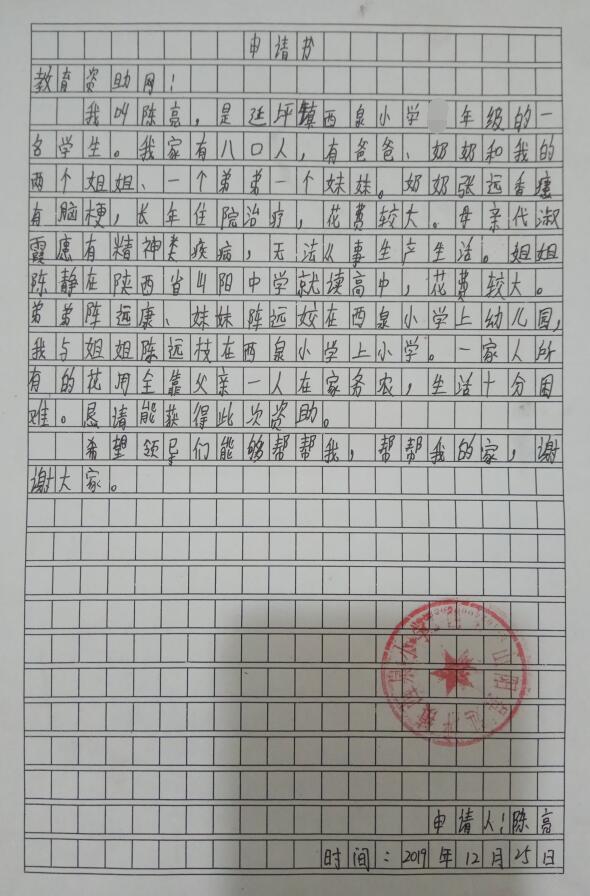 申请书
教育资助网：
我叫陈亮，是延坪镇西泉小学年级的一
名学生。我家有八口人，有爸爸、奶奶和我的
两个姐姐、一个弟弟一个妹妹。奶奶张远香患
有脑梗，长年住院治疗，花费较大。母亲代淑
霞患有精神类疾病，无法从事生产生活。姐姐
陈静在陕西省山阳中学就读高中，花费较大。
弟弟陈远康、妹妹陈远姣在西泉小学上幼儿园，
我与姐姐陈远枝在西泉小学上小学。一家人所
有的花用全靠父亲一人在家务农，生活十分困
难。恳请能获得此次资助。
希望领导们能够帮帮我，帮帮我的家，谢
谢大家。
申请人：陈亮
时间：2019年12月25日